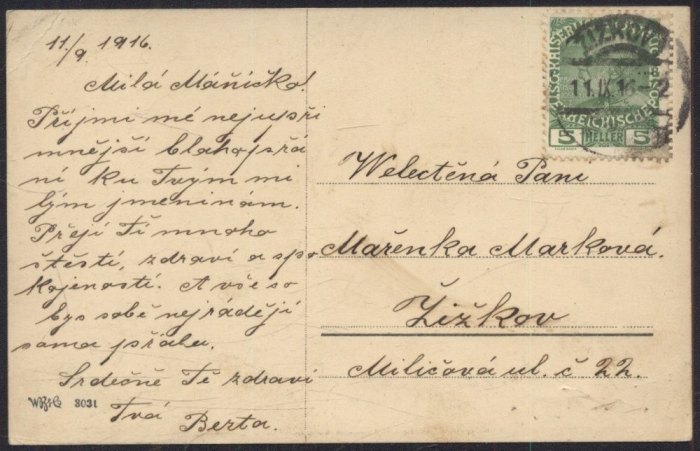 11/9 1916.
Milá Máničko!
Přijmi mé nejupří
mnější blahopřá
ní ku Tvým mi
lým jmeninám.
Přeji Ti mnoho
štěstí, zdraví a spo
kojenosti. A vše co
bys sobě nejraději
sama přála.
Srdečně Tě zdraví
Tvá Berta.
3031
ŽIŽKOV
11.IX.16-2
5 HELLER 5
Velectěná Paní
Mařenka Marková.
Žižkov
Miličová ul. č 22.